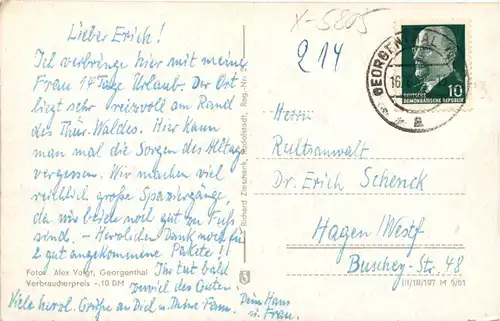 Lieber Erich!
Ich verbringe hier mit meiner
Frau 14 Tage Urlaub. Der Ort
liegt sehr reizvoll am Rand
des Thür. Waldes. Hier kann
man mal die Sorgen des Alltags
vergessen. Wir machen viel
große Spaziergänge,
da wir beide noch gut zu Fuß
sind. – Herzlichen Dank noch für
gut angekommene Pakete!
Ihr tut bald
zuviel des Guten.
Viele herzl. Grüße an Dich u. Deine Fam.
Dein Hans
u. Frau.
Foto: Alex Voigt, Georgenthal
Verbraucherpreis -.10 DM
Richard Zieschank, Rudolstadt, Reg.-Nr.
X-5805
214
GEORGENTHAL
16.
10
DEUTSCHE
DEMOKRATISCHE REPUBLIK
Herrn
Rechtsanwalt
Dr. Erich Schenck
Hagen/Westf
Buschey-Str. 48
III/18/197 M 5/61